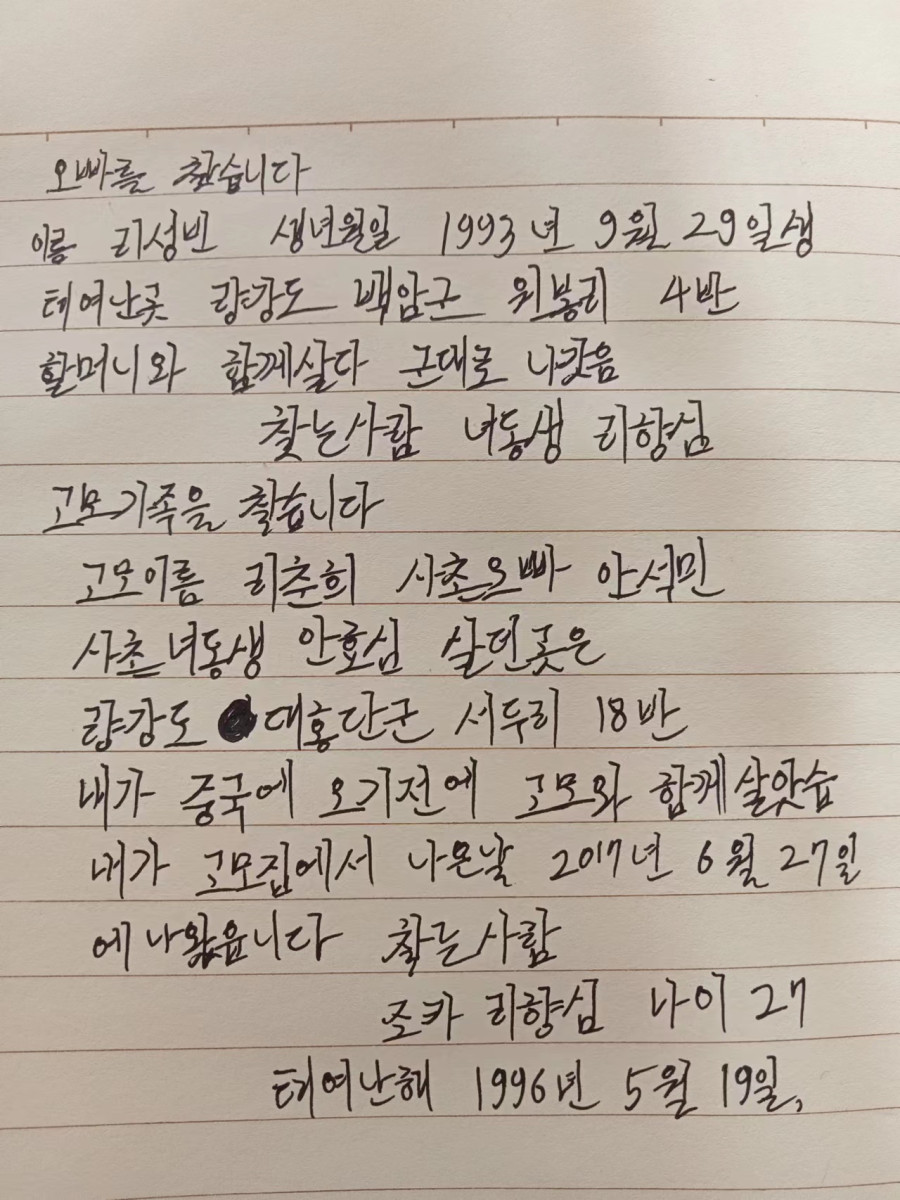 오빠를 찾습니다
이름 리성빈 생년월일 1993년 9월 29일생
테여난곳 량강도 백암군 위봉리 4반
할머니와 함께살다 군대로 나갔음
찾는사람 녀동생 리향심
고모가족을 찾습니다
고모이름 리춘희 사촌오빠 안석민
사촌녀동생 안효심 살던곳은
량강도 대홍단군 서두리 18반
내가 중국에 오기전에 고모와 함께살앗습
내가 고모집에서 나온날 2017년 6월 27일
에 나왔읍니다 찾는사람
조카 리향심 나이 27
테여난해 1996년 5월 19일,